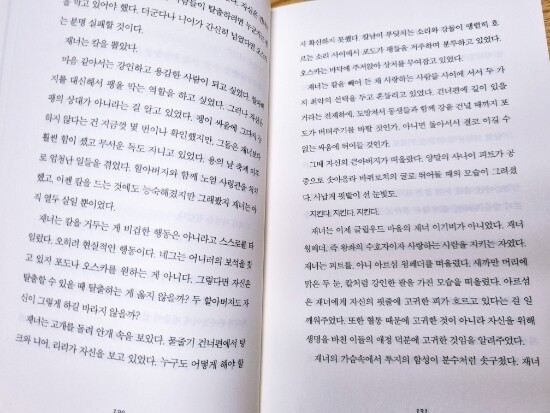 이 되고 있어야 했다. 더군다나 니아가 간신히 넘었다면 오스
는 분명 실패할 것이다.
재너는 칼을 뽑았다.
마음 같아서는 강인하고 용감한 사람이 되고 싶었다.
지를 대신해서 팽을 막는 역할을 하고 싶었다. 그러나 자신은
팽의 상대가 아니라는 걸 알고 있었다. 팽이 싸움에
하지 않다는 건 지금껏 몇 번이나 확인했지만, 그들은 재너보다
훨씬 힘이 셌고 무서운 독도 지니고 있었다. 용의 날 축제 이후
로 엄청난 일들을 겪었다. 할아버지와 함께 노엄 사령관을 처치
했고, 이젠 칼을 드는 것에도 능숙해졌지만 그래봤자 재너는 아
직 열두 살일 뿐이었다.
재너는 칼을 거두는 게 비겁한 행동은 아니라고 스스로를 타
일렀다. 오히려 현실적인 행동이다. 네그는 어니러의 보석을 찾
고 있지 포도나 오스카를 원하는 게 아니다. 그렇다면 자신은
탈출할 수 있을 때 탈출하는 게 옳지 않을까? 두 할아버지도 자
신이 그렇게 하길 바라지 않을까?
재너는 고개를 돌려 안개 속을 보았다. 물줄기 건너편에서 팅
크와 니아, 리리가 자신을 보고 있었다. 누구도 어떻게 해야 할
120
지 확신하지 못했다. 칼날이 부딪치는 소리와 강물이 맹렬히 흐
르는 소리 사이에서 포도가 팽들을 저주하며 분투하고 있었다.
오스카는 바닥에 주저앉아 상처를 부여잡고 있었다.
재너는 칼을 빼어 든 채 사랑하는 사람들 사이에 서서 두 가
지 최악의 선택을 두고 흔들리고 있었다. 건너편에 길이 있을
거라는 전제하에, 도망쳐서 동생들과 함께 강을 건널 때까지 포도
가 버텨주기를 바랄 것인가. 아니면 돌아서서 결코 이길 수
없는 싸움에 뛰어들 것인가.
그때 자신의 큰아버지가 떠올랐다. 양말의 사나이 피트가 공
중으로 솟아올라 바위로치의 굴로 뛰어들 때의 모습이 그려졌
다. 사납게 핏발이 선 눈빛도.
지킨다. 지킨다. 지킨다.
재너는 이제 글립우드 마을의 재너 이기비가 아니었다. 재너
윙페더, 즉 왕좌의 수호자이자 사랑하는 사람을 지키는 자였다.
재너는 피트를, 아니 아르섬 윙페더를 떠올렸다. 새까만 머리에
맑은 두 눈, 칼처럼 강인한 팔을 가진 모습을 떠올렸다. 아르섬
은 재너에게 자신의 핏줄에 고귀한 피가 흐르고 있다는 걸 일
깨워주었다. 또한 혈통 때문에 고귀한 것이 아니라 자신을 위해
생명을 바친 이들의 애정 덕분에 고귀한 것임을 알려주었다.
재너의 가슴속에서 투지의 함성이 분수처럼 솟구쳤다. 재너
121